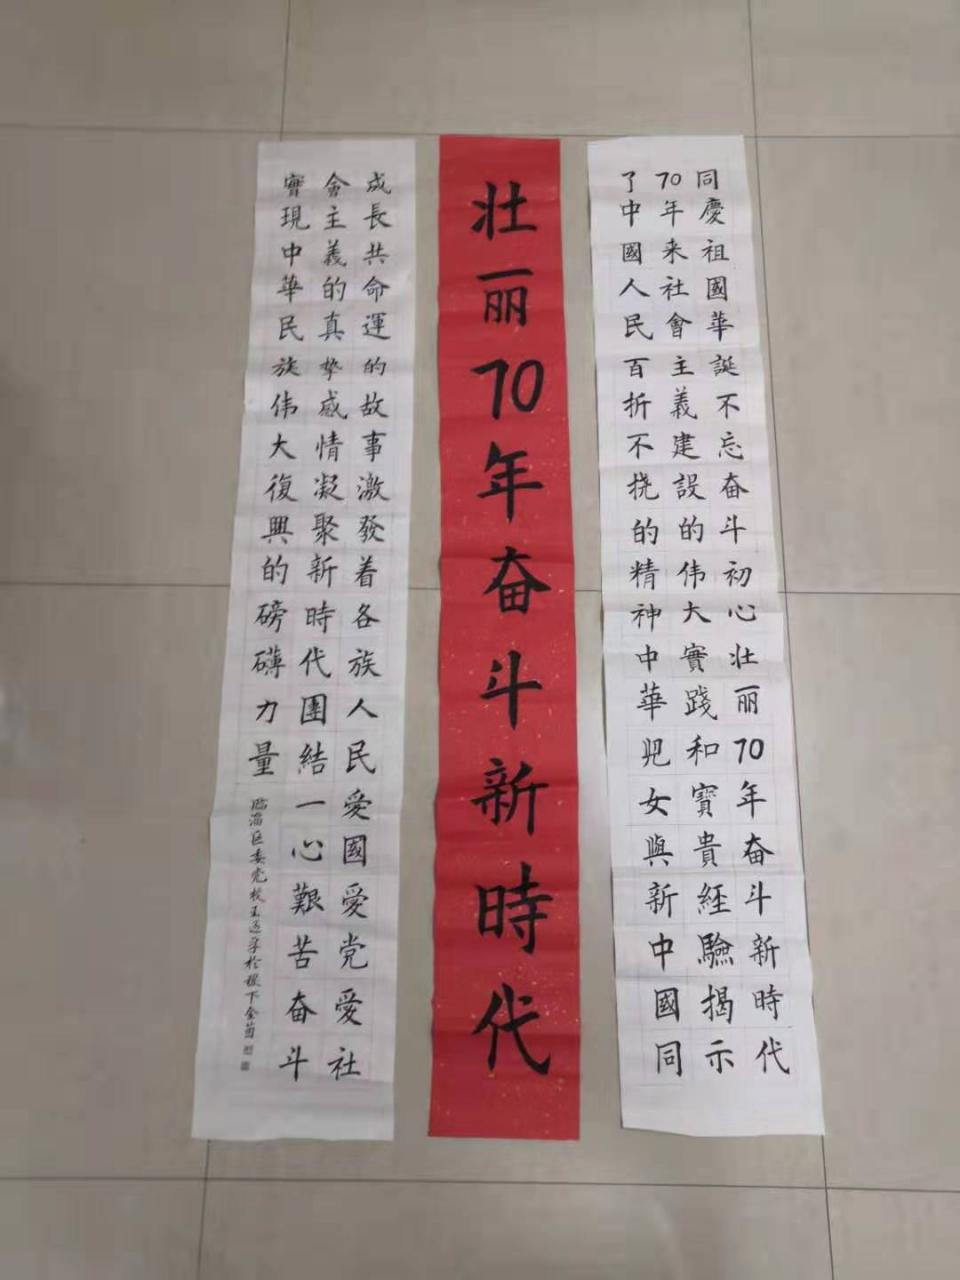 壮丽70年奋斗新時代
同慶祖國華誕不忘奋斗初心壮丽70年奋斗新時代
70年来社會主義建設的伟大實踐和寶貴経驗揭示
了中國人民百折不挠的精神中華児女與新中國同
成長共命運的故事激發着各族人民愛國愛党愛社
會主義的真挚感情凝聚新時代團結一心艱苦奋斗
實現中華民族伟大復興的磅礴力量
临淄区委党校王於稷下